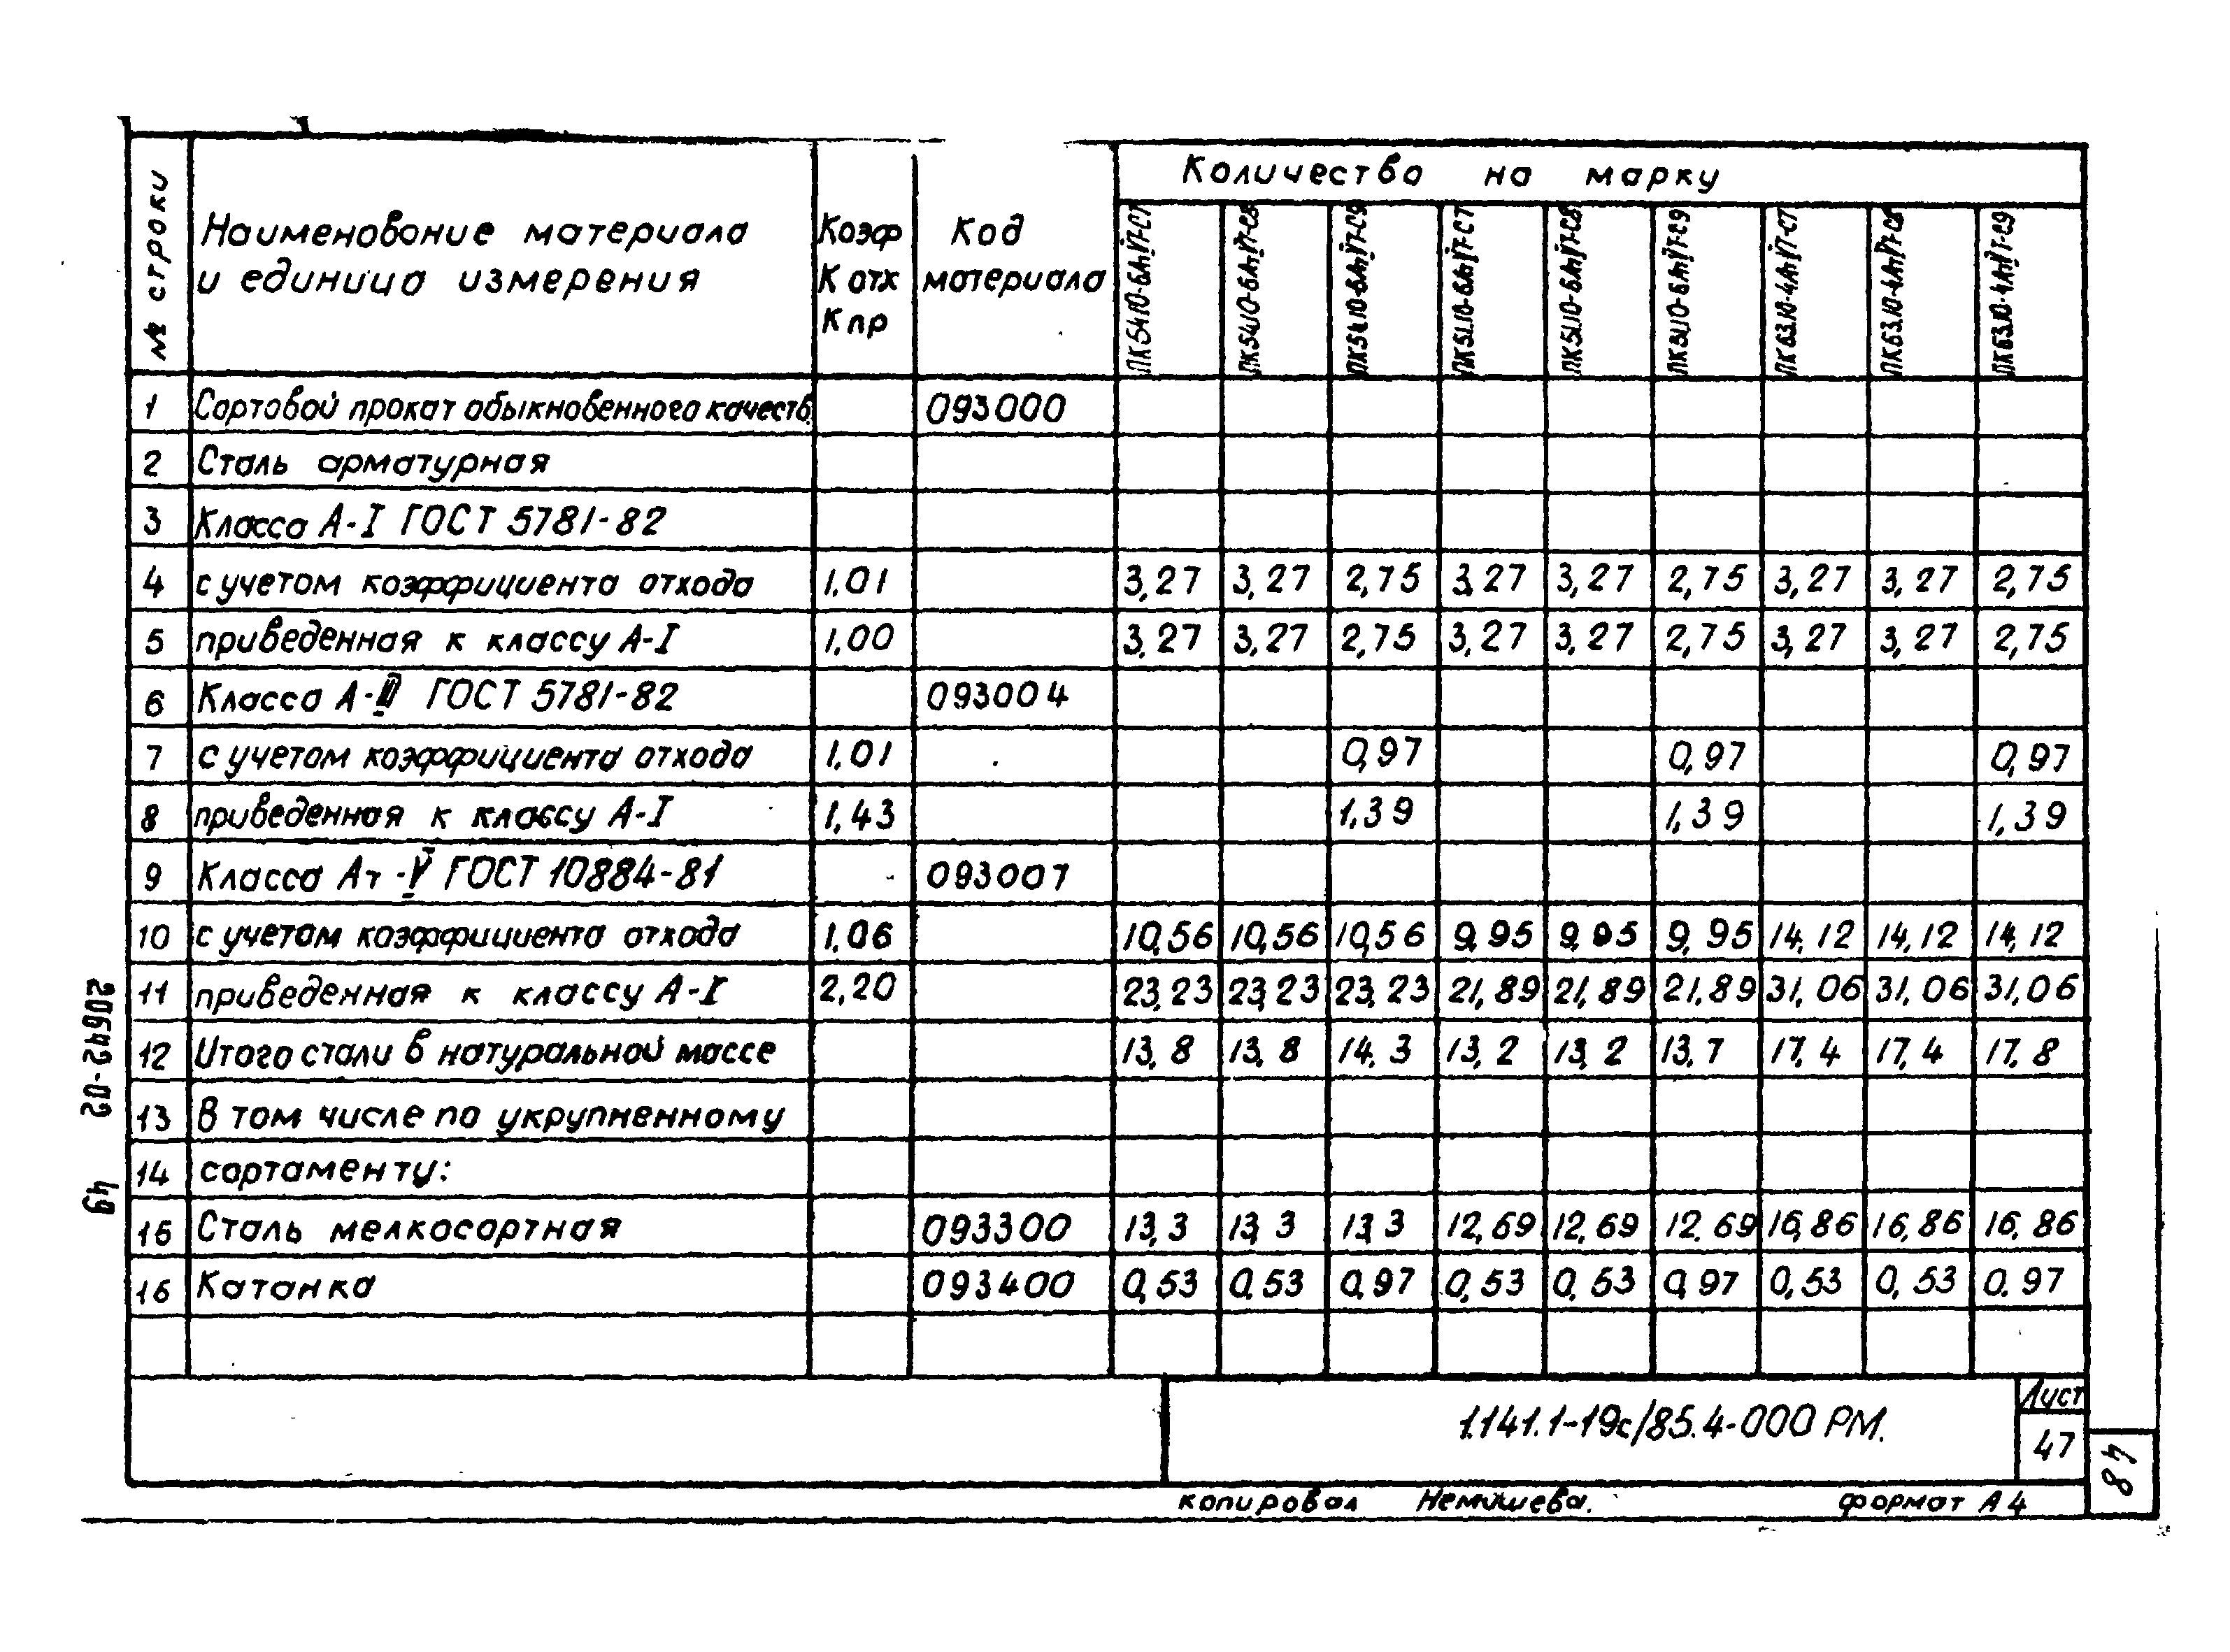 № строки
Наименование материала
и единица измерения
Коэф
К отх
К пр
Код
материала
Количество на марку
1 Сортовой прокат обыкновенного качеств. 093000
2 Сталь арматурная
3 Класса А-I ГОСТ 5781-82
4 с учетом коэффициента отхода 1,01 3,27 3,27 2,75 3,27 3,27 2,75 3,27 3,27 2,75
5 приведенная к классу А-I 1,00 3,27 3,27 2,75 3,27 3,27 2,75 3,27 3,27 2,75
6 Класса А-III ГОСТ 5781-82 093004
7 с учетом коэффициента отхода 1,01 0,97 0,97 0,97
8 приведенная к классу А-I 1,43 1,39 1,39 1,39
9 Класса Ат-V ГОСТ 10884-81 093007
10 с учетом коэффициента отхода 1,06 10,56 10,56 10,56 9,95 9,95 9,95 14,12 14,12 14,12
11 приведенная к классу А-I 2,20 23,23 23,23 23,23 21,89 21,89 21,89 31,06 31,06 31,06
12 Итого стали в натуральной массе 13,8 13,8 14,3 13,2 13,2 13,7 17,4 17,4 17,8
13 В том числе по укрупненному
14 сортаменту:
15 Сталь мелкосортная 093300 13,3 13,3 13,3 12,69 12,69 12,69 16,86 16,86 16,86
16 Катанка 093400 0,53 0,53 0,97 0,53 0,53 0,97 0,53 0,53 0,97
20642-02 49
1.141.1-19с/85.4-000 РМ.
Лист
47
48
копировал Немишева. формат А4